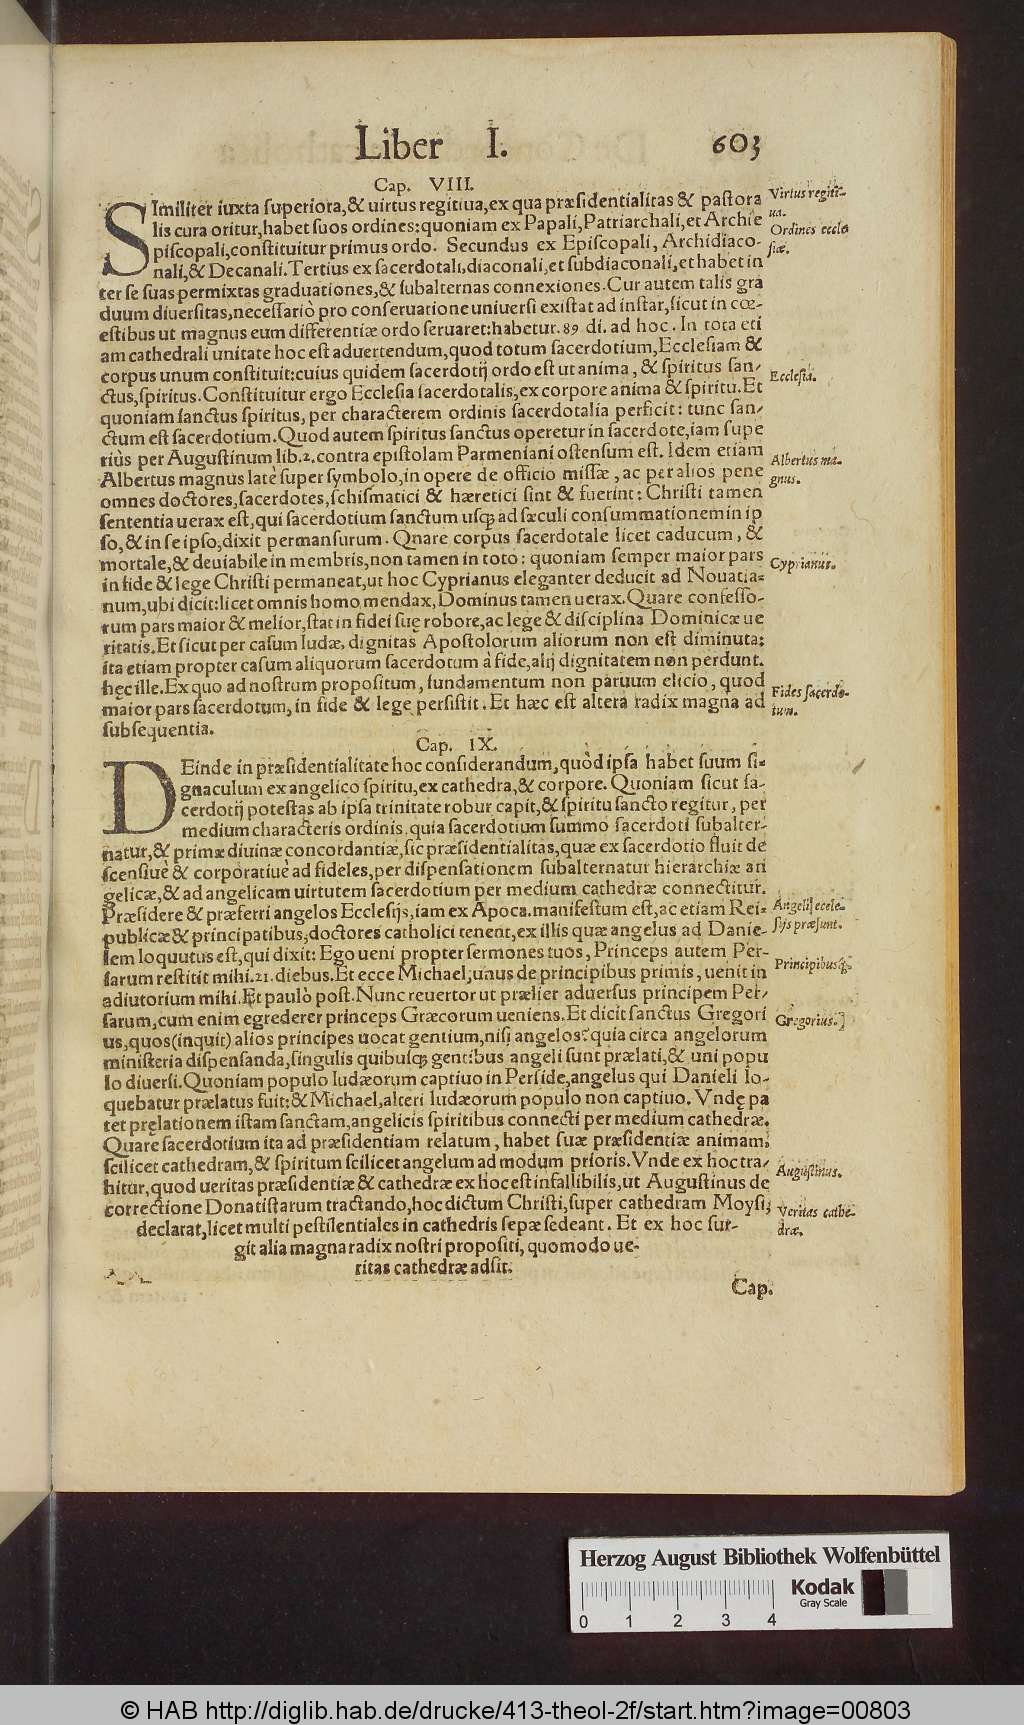 Liber I. 603
Cap. VIII.
SImiliter iuxta superiora,& uirtus regitiua,ex qua præsidentialitas & pastora
lis cura oritur,habet suos ordines:quoniam ex Papali,Patriarchali,et Archie
piscopali,constituitur primus ordo. Secundus ex Episcopali, Archidiaco-
nali,& Decanali.Tertius ex sacerdotali,diaconali,et subdiaconali,et habet in
ter se suas permixtas graduationes,& subalternas connexiones.Cur autem talis gra
duum diuersitas,necessariò pro conseruatione uniuersi existat ad instar,sicut in cœ-
estibus ut magnus eum differentiæ ordo seruaret:habetur.89 di. ad hoc. In tota eti
am cathedrali unitate hoc est aduertendum,quod totum sacerdotium,Ecclesiam &
corpus unum constituit:cuius quidem sacerdotij ordo est ut anima, & spiritus san-
ctus,spiritus.Constituitur ergo Ecclesia sacerdotalis,ex corpore anima & spiritu.Et
quoniam sanctus spiritus, per characterem ordinis sacerdotalia perficit: tunc san-
ctum est sacerdotium.Quod autem spiritus sanctus operetur in sacerdote,iam supe
riùs per Augustinum lib.2.contra epistolam Parmeniani ostensum est. Idem etiam
Albertus magnus latè super symbolo,in opere de officio missæ, ac per alios pene
omnes doctores,sacerdotes,schismatici & hæretici sint & fuerint: Christi tamen
sententia uerax est,qui sacerdotium sanctum usq; ad sæculi consummationem in ip
so,& in se ipso,dixit permansurum. Quare corpus sacerdotale licet caducum, &
mortale,& deuiabile in membris,non tamen in toto: quoniam semper maior pars
in fide & lege Christi permaneat,ut hoc Cyprianus eleganter deducit ad Nouatia-
num,ubi dicit:licet omnis homo mendax,Dominus tamen uerax.Quare confesso-
rum pars maior & melior,stat in fidei suę robore,ac lege & disciplina Dominicæ ue
ritatis.Et sicut per casum Iudæ, dignitas Apostolorum aliorum non est diminuta:
ita etiam propter casum aliquorum sacerdotum à fide,alij dignitatem non perdunt.
hęc ille.Ex quo ad nostrum propositum, fundamentum non paruum elicio, quod
maior pars sacerdotum, in fide & lege persistit. Et hæc est altera radix magna ad
subsequentia.
Virtus regiti-
ua.
Ordines eccle
siæ.
Ecclesia.
Albertus ma-
gnus.
Cyprianus.
Fides sacerdo-
tum.
Cap. IX.
DEinde in præsidentialitate hoc considerandum,quòd ipsa habet suum si-
gnaculum ex angelico spiritu,ex cathedra,& corpore. Quoniam sicut sa-
cerdotij potestas ab ipsa trinitate robur capit,& spiritu sancto regitur, per
medium characteris ordinis, quia sacerdotium summo sacerdoti subalter-
natur,& primæ diuinæ concordantiæ,sic præsidentialitas,quæ ex sacerdotio fluit de
scensiuè & corporatiuè ad fideles,per dispensationem subalternatur hierarchiæ an
gelicæ,& ad angelicam uirtutem sacerdotium per medium cathedræ connectitur.
Præsidere & præferri angelos Ecclesijs,iam ex Apoca.manifestum est,ac etiam Rei-
publicæ & principatibus,doctores catholici tenent,ex illis quæ angelus ad Danie-
lem loquutus est,qui dixit: Ego ueni propter sermones tuos, Princeps autem Per-
sarum restitit mihi.21.diebus.Et ecce Michael,unus de principibus primis, uenit in
adiutorium mihi.Et paulò post.Nunc reuertor ut prælier aduersus principem Per-
sarum,cum enim egrederer princeps Græcorum ueniens.Et dicit sanctus Gregori
us,quos(inquit)alios principes uocat gentium,nisi angelos? quia circa angelorum
ministeria dispensanda,singulis quibusq; gentibus angeli sunt prælati,& uni popu
lo diuersi.Quoniam populo Iudæorum captiuo in Perside,angelus qui Danieli lo-
quebatur prælatus fuit:& Michael,alteri Iudæorum populo non captiuo. Vndę pa
tet pręlationem istam sanctam,angelicis spiritibus connecti per medium cathedræ.
Quare sacerdotium ita ad præsidentiam relatum, habet suæ præsidentiæ animam,
scilicet cathedram,& spiritum scilicet angelum ad modum prioris.Vnde ex hoc tra-
hitur,quod ueritas præsidentiæ & cathedræ ex hoc est infallibilis,ut Augustinus de
correctione Donatistarum tractando,hoc dictum Christi,super cathedram Moysi,
declarat,licet multi pestilentiales in cathedris sepæ sedeant. Et ex hoc sur-
git alia magna radix nostri propositi, quomodo ue-
ritas cathedræ adsit.
Angeli ecele-
sijs præsunt.
Principibusq;.
Gregorius.
Augustinus.
Veritas cathe-
dræ.
Cap.
Herzog August Bibliothek Wolfenbüttel
Kodak
Gray Scale
0 1 2 3 4
© HAB http://diglib.hab.de/drucke/413-theol-2f/start.htm?image=00803